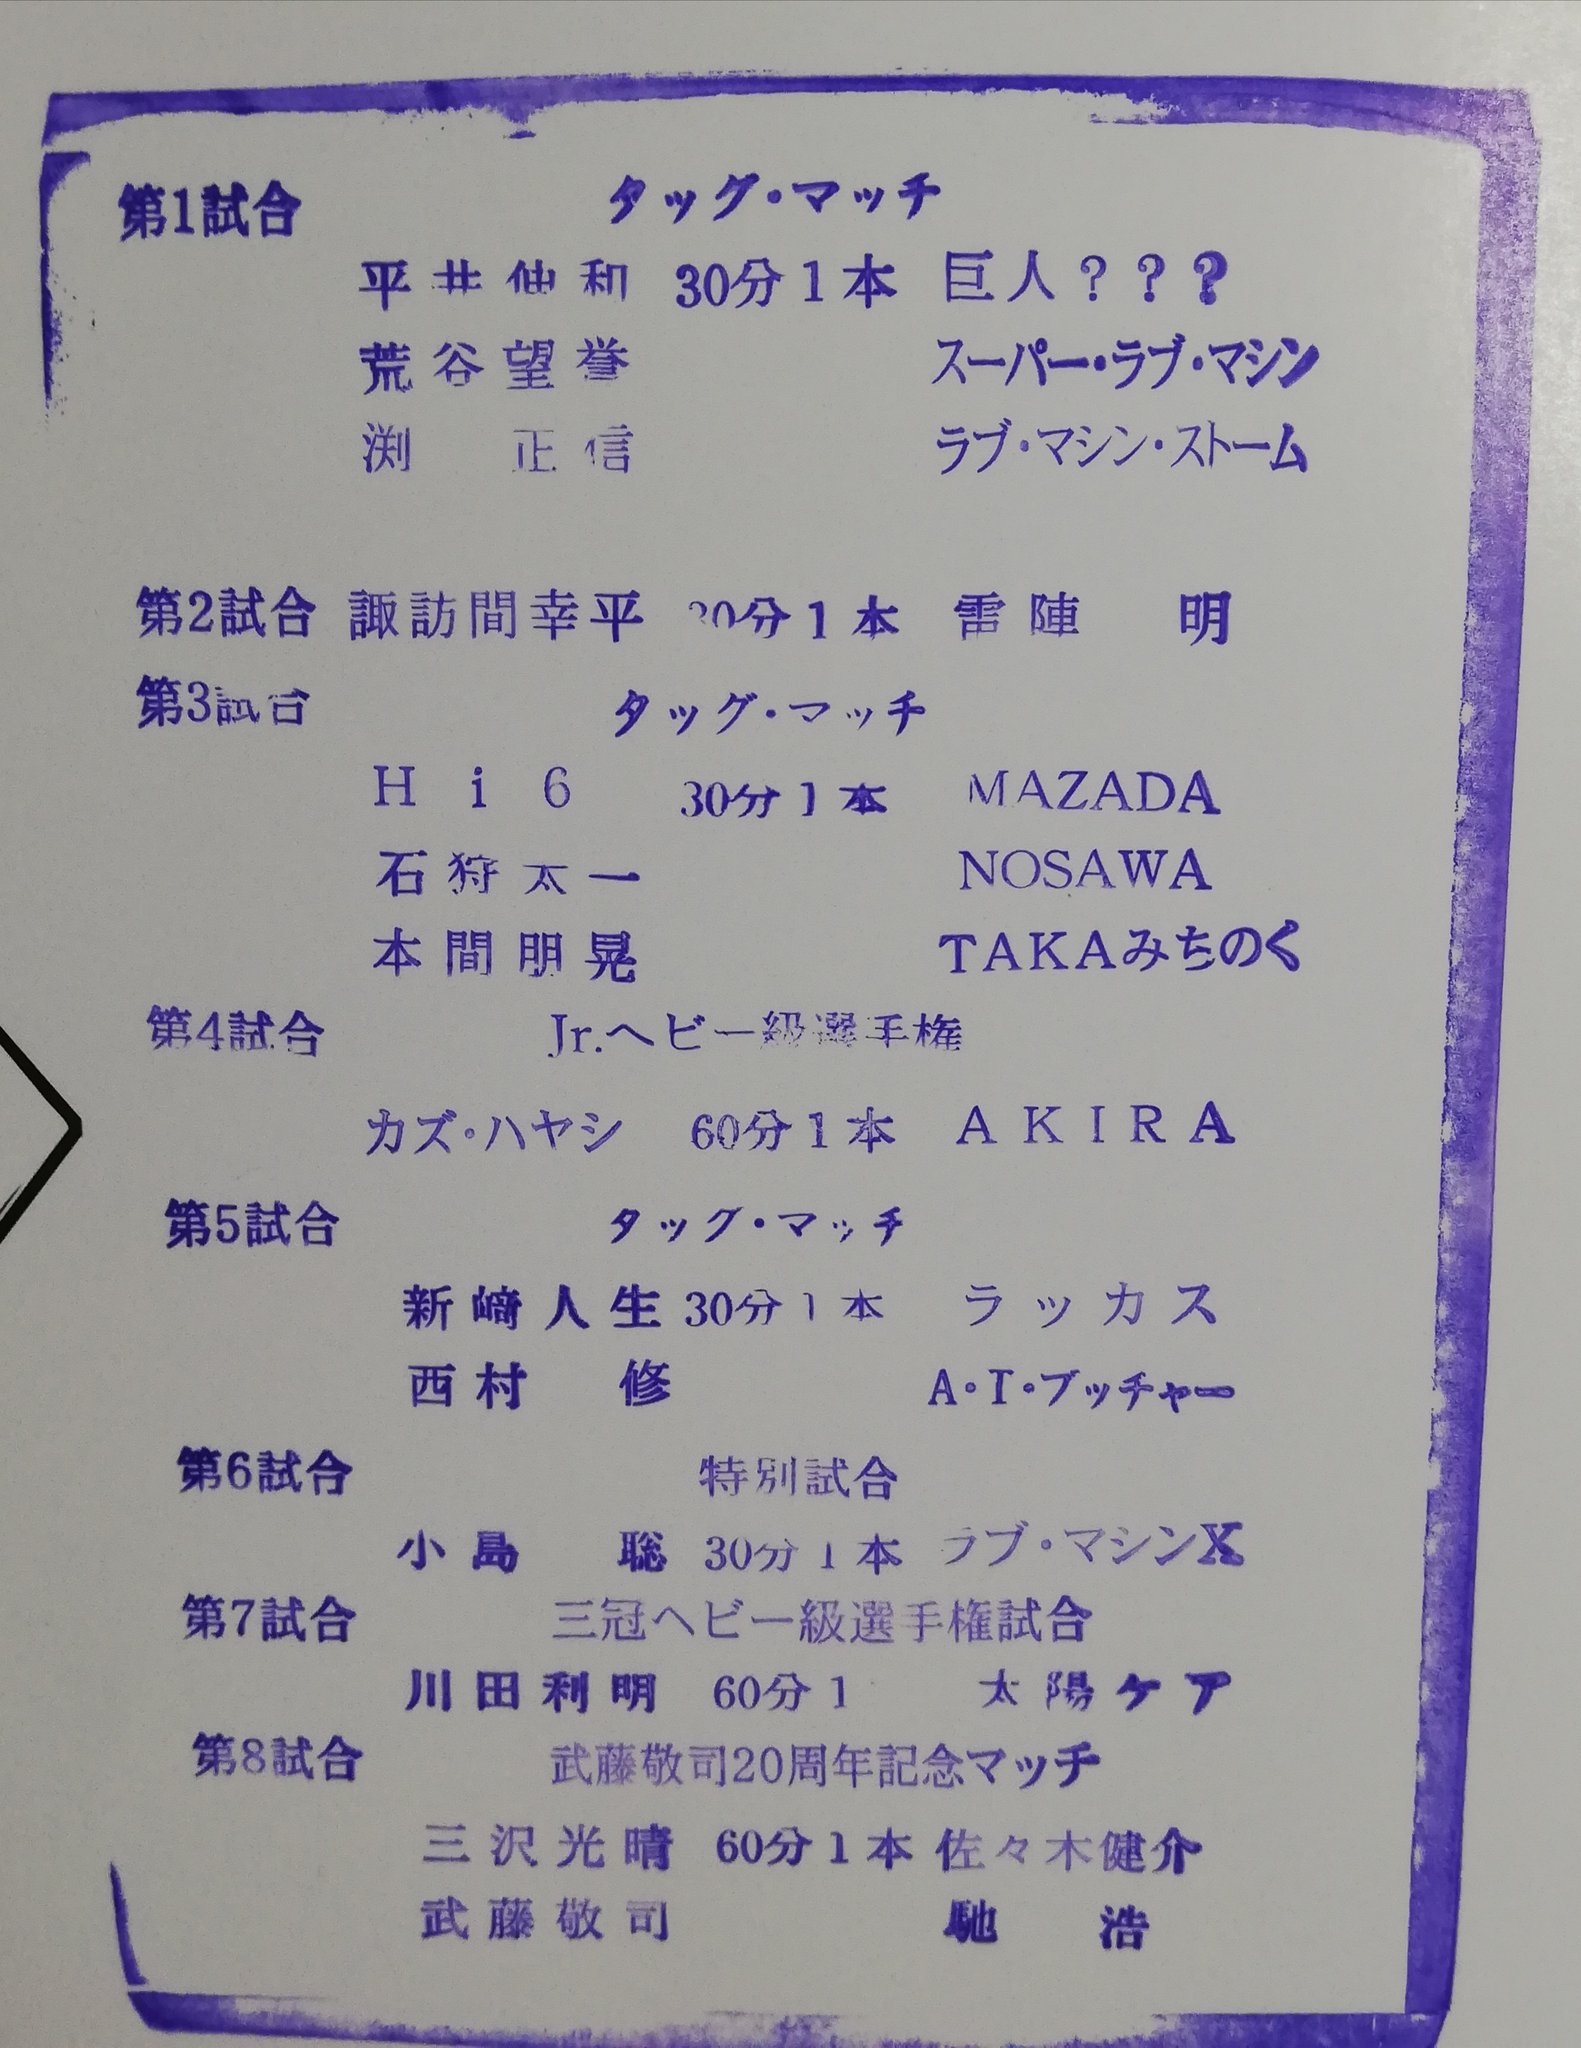 第1試合 タッグ・マッチ
平井伸和 30分1本 巨人???
荒谷望誉 スーパー・ラブ・マシン
渕 正信 ラブ・マシン・ストーム
第2試合 諏訪間幸平 30分1本 雷陣 明
第3試合 タッグ・マッチ
Hi6 30分1本 MAZADA
石狩太一 NOSAWA
本間朋晃 TAKAみちのく
第4試合 Jr.ヘビー級選手権
カズ・ハヤシ 60分1本 AKIRA
第5試合 タッグ・マッチ
新崎人生 30分1本 ラッカス
西村 修 A・T・ブッチャー
第6試合 特別試合
小島 聡 30分1本 ラブ・マシンX
第7試合 三冠ヘビー級選手権試合
川田利明 60分1 太陽ケア
第8試合 武藤敬司20周年記念マッチ
三沢光晴 60分1本 佐々木健介
武藤敬司 馳 浩